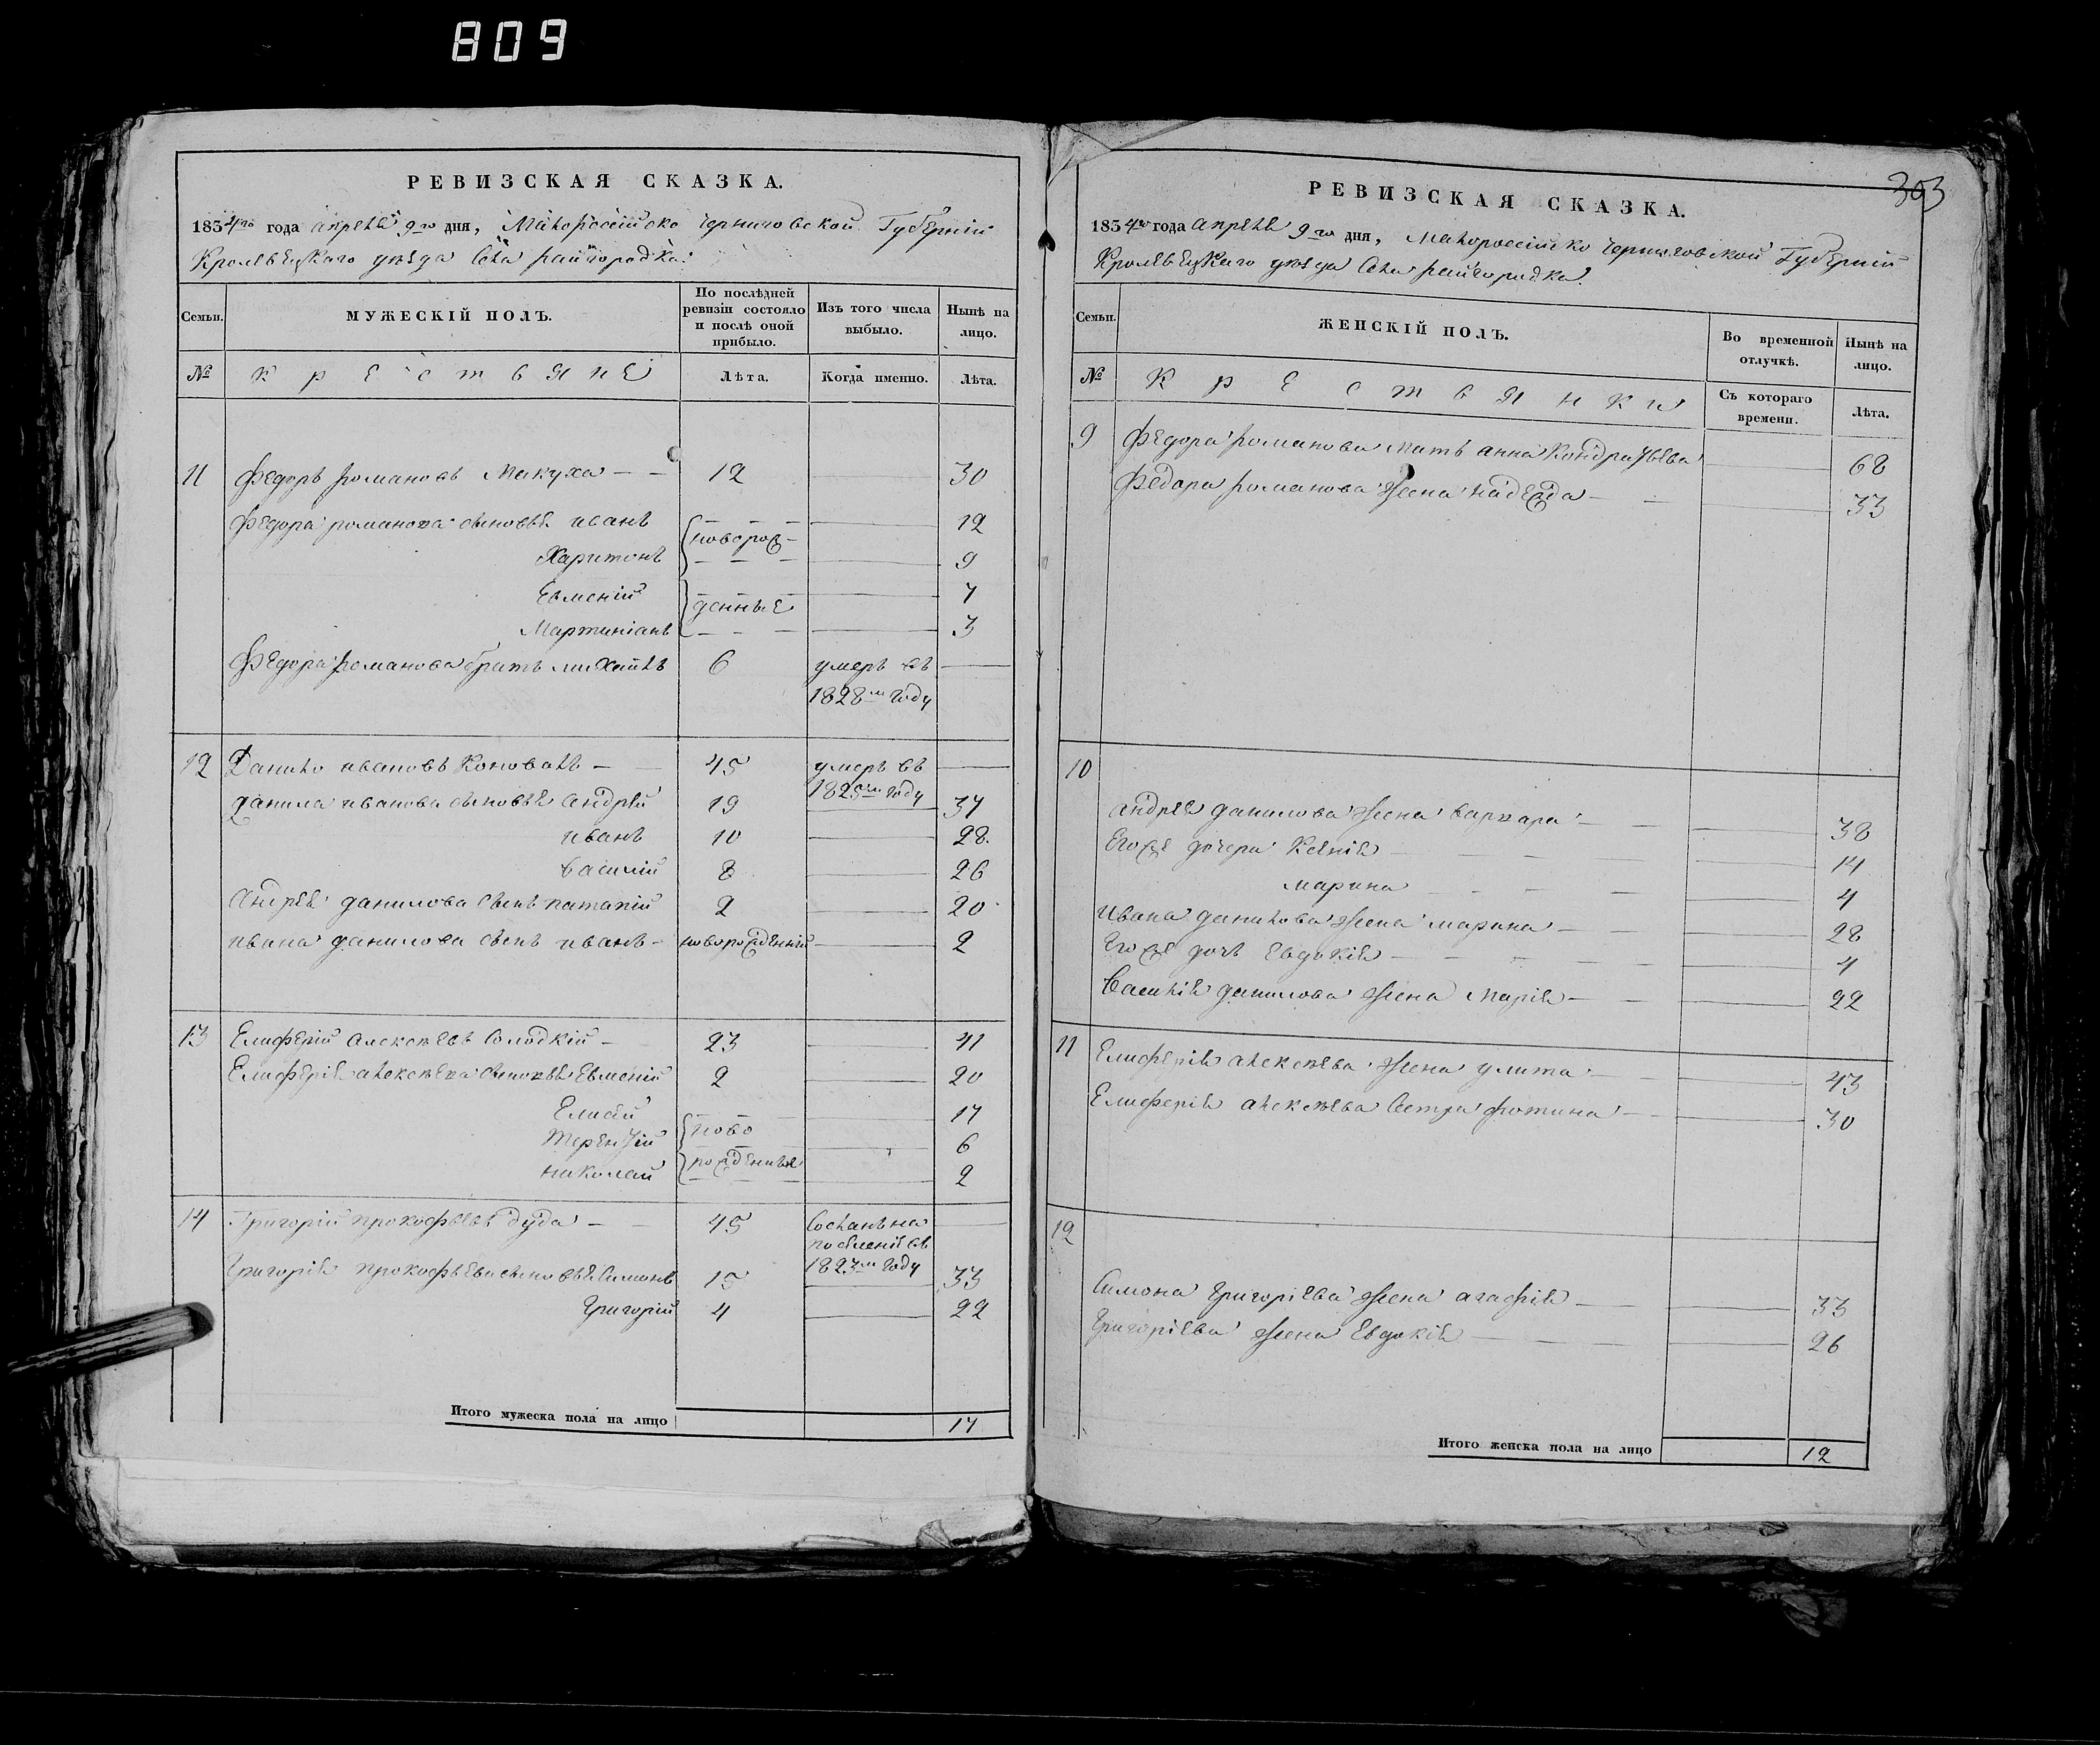 809
РЕВИЗСКАЯ СКАЗКА.
1834го года апреля 9го дня, Малороссійско Черниговской Губерніи
Кролевецкаго уѣзда Села райгородка.
Семьи. МУЖЕСКІЙ ПОЛЪ. По послѣдней ревизіи состояло и послѣ оной прибыло. Изъ того числа выбыло. Нынѣ на лицо.
№ Крестьяне Лѣта. Когда именно. Лѣта.
11 Федоръ романовъ Макуха 12 30
Федора романова сыновья иванъ 12
новорож-
Харитонъ 9
Евменій 7
денные
Мартиніанъ 3
Федора романова братъ михаилъ 6 умеръ въ
1828м году
12 Данило ивановъ Коновалъ 45 умеръ въ
1825м году
данила иванова сыновья андрей 19 37
иванъ 10 28.
василій 8 26
Андрея данилова сынъ патапій 2 20
ивана данилова сынъ иванъ новорожденій 2
13 Елиферій алексѣевъ Солодкій 23 41
Елиферія алексѣева сыновья Евменій 2 20
Елисей 17
ново
терентій 6
рожденные
николай 2
14 Григорій прокофьевъ дуда 45 Сосланъ на
поселеніе въ
1823м году
Григорія прокофьева сыновья Симонъ 15 33
Григорій 4 22
Итого мужеска пола на лицо 17
303
РЕВИЗСКАЯ СКАЗКА.
1834го года апреля 9го дня, Малороссійско Черниговской Губерніи
Кролевецкаго уѣзда Села райгородка.
Семьи. ЖЕНСКІЙ ПОЛЪ. Во временной отлучкѣ. Нынѣ на лицо.
№ Крестьянки Съ котораго времени. Лѣта.
9 Федора романова мать анна Кондратьева 68
Федора романова жена надежда 33
10
андрея данилова жена варвара 38
Егоже дочери Ксенія 14
марина 4
ивана данилова жена марина 28
Егоже дочь Евдокія 4
Василія данилова жена Марія 22
11 Елиферія алексѣева жена улита 43
Елиферія алексѣева Сестра фотина 30
12
Симона Григоріева жена агафія 33
Григоріева жена Евдокія 26
Итого женска пола на лицо 12